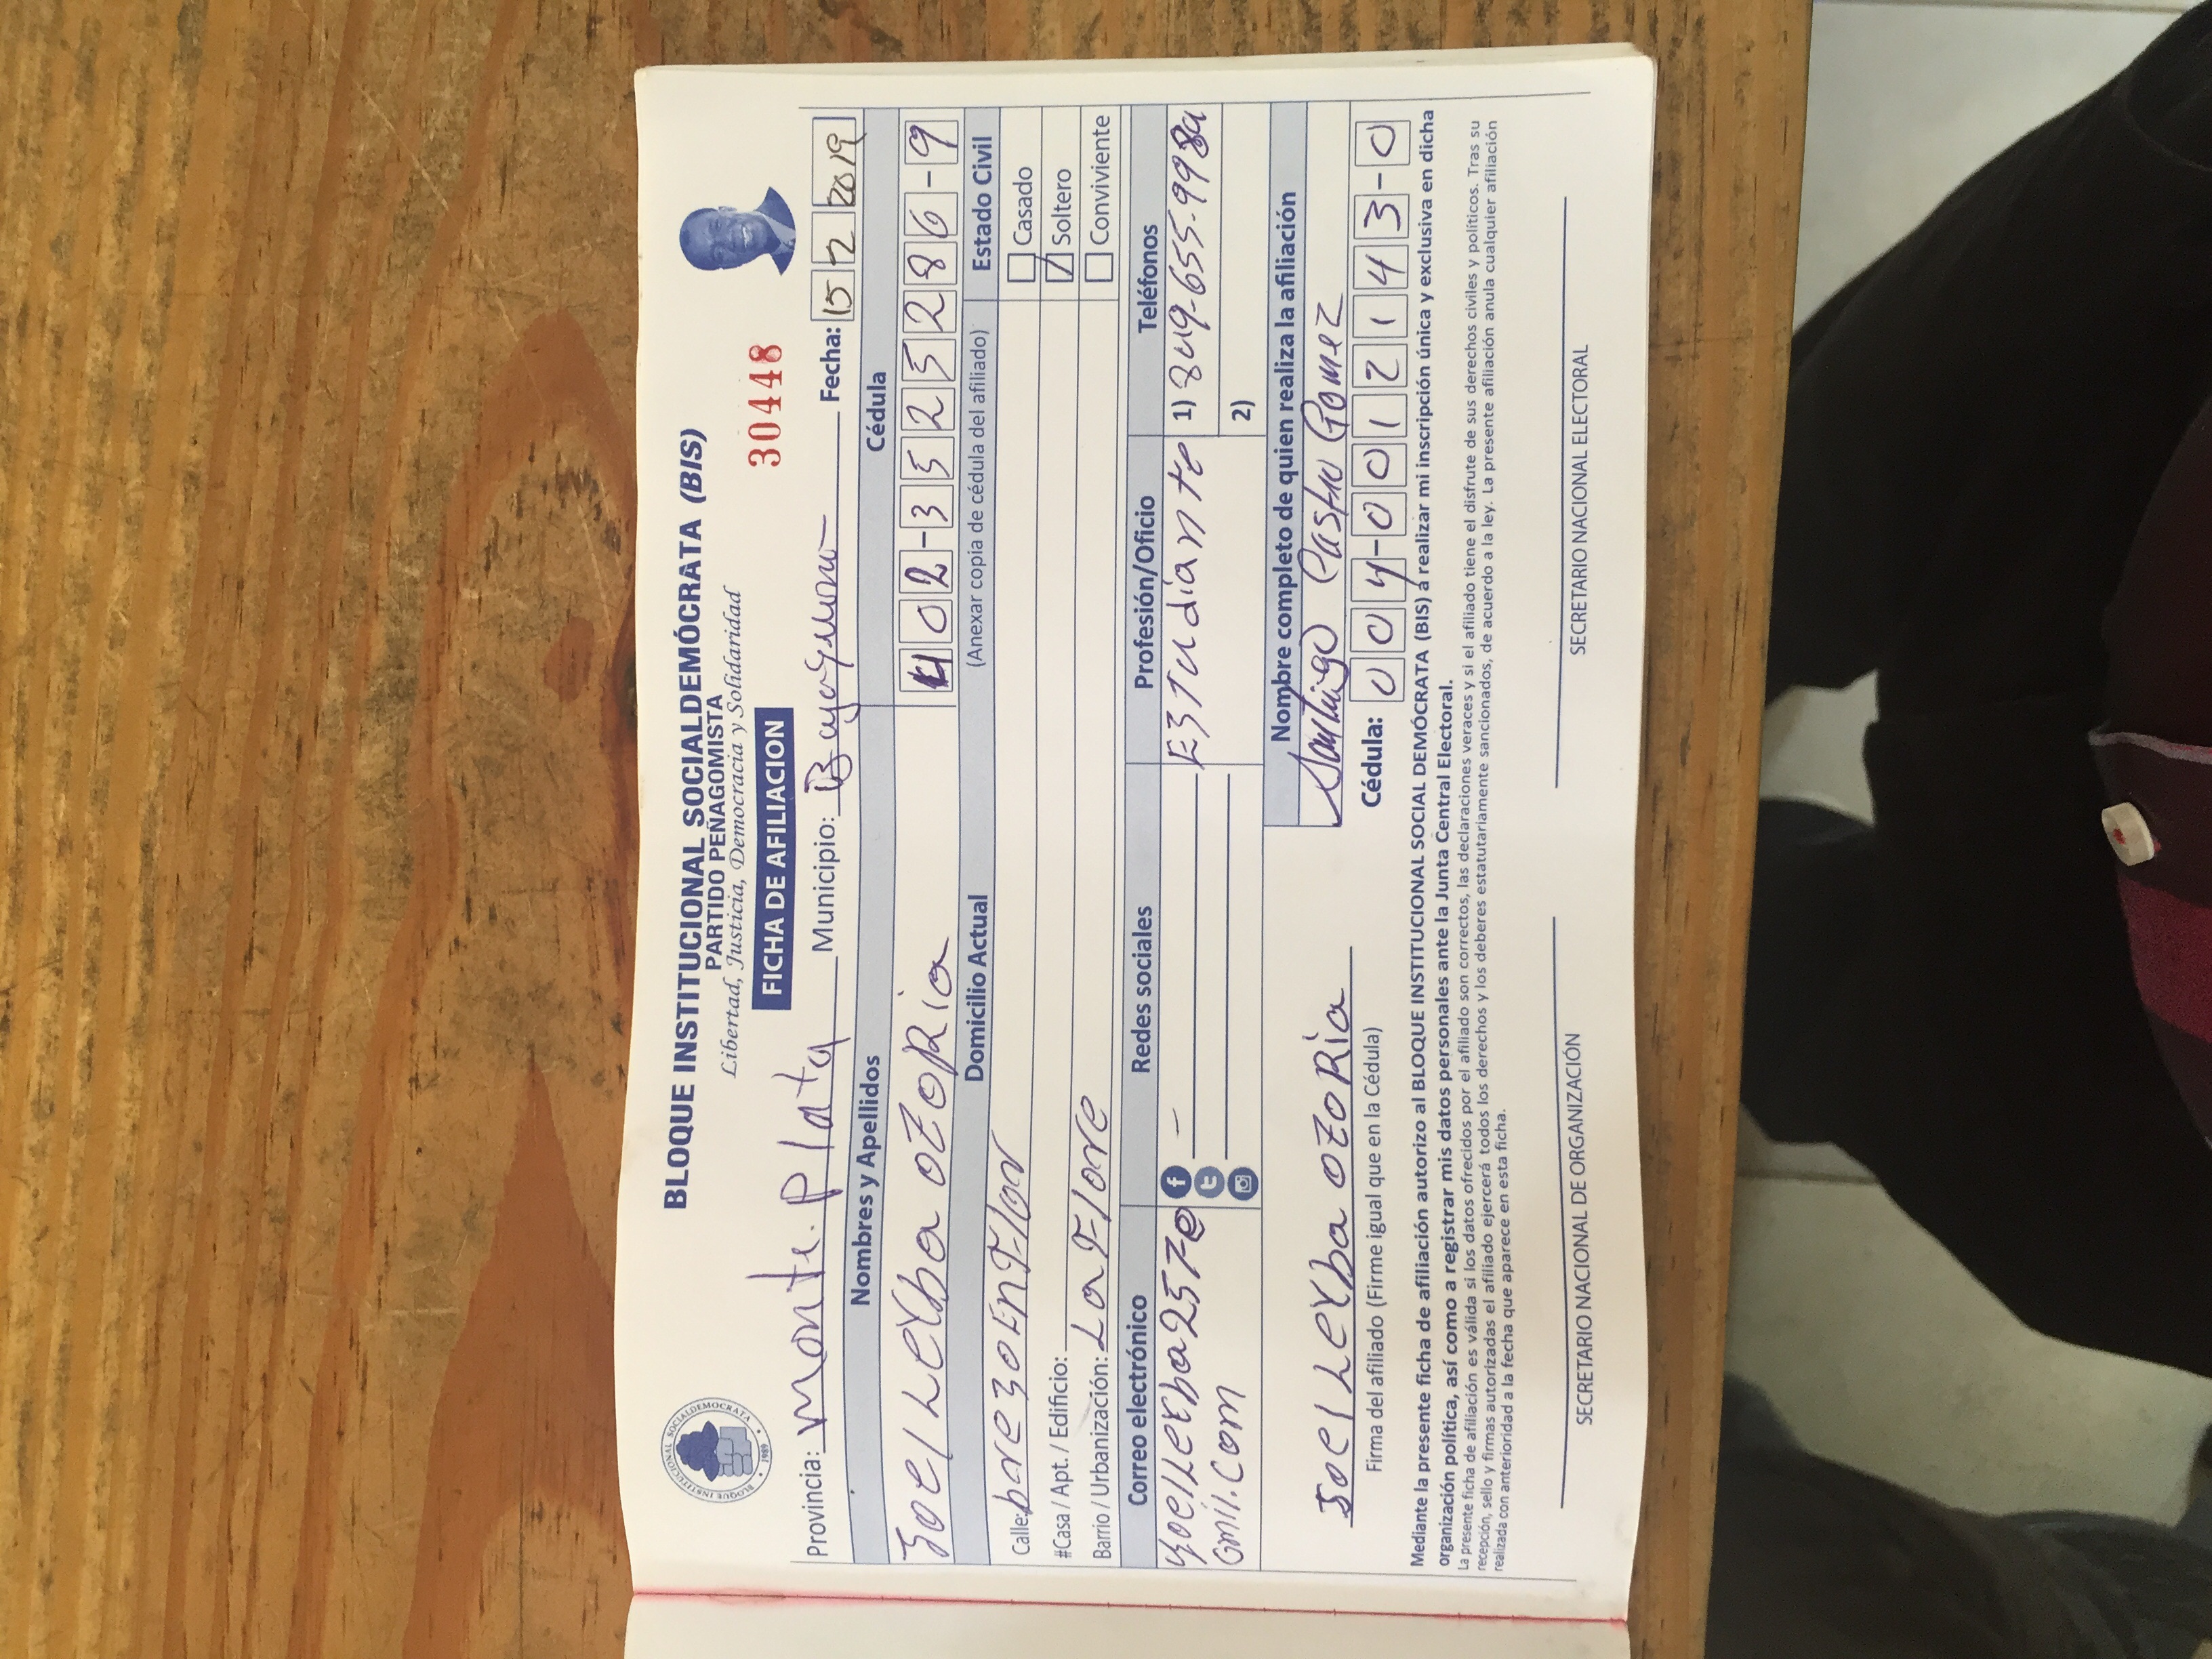 BLOQUE INSTITUCIONAL SOCIALDEMOCRATA
1989
BLOQUE INSTITUCIONAL SOCIALDEMÓCRATA (BIS)
PARTIDO PEÑAGOMISTA
Libertad, Justicia, Democracia y Solidaridad
FICHA DE AFILIACION
30448
Provincia: Monte. Plata Municipio: Bayaguana Fecha: 15 2 2019
Nombres y Apellidos Cédula
Joel Leyba oZoRia 402-3525286-9
Domicilio Actual (Anexar copia de cédula del afiliado) Estado Civil
Calle: Casado
#Casa / Apt. / Edificio: Soltero
Barrio / Urbanización: La Flore Conviviente
Correo electrónico Redes sociales Profesión/Oficio Teléfonos
yoelleyba257@ Estudiante 1) 849-655-998
Gmil.com 2)
Nombre completo de quien realiza la afiliación
Santiago Castro Gomez
Joel Leyba oZoRia Cédula: 004-0012143-0
Firma del afiliado (Firme igual que en la Cédula)
Mediante la presente ficha de afiliación autorizo al BLOQUE INSTITUCIONAL SOCIAL DEMÓCRATA (BIS) a realizar mi inscripción única y exclusiva en dicha
organización política, así como a registrar mis datos personales ante la Junta Central Electoral.
La presente ficha de afiliación es válida si los datos ofrecidos por el afiliado son correctos, las declaraciones veraces y si el afiliado tiene el disfrute de sus derechos civiles y políticos. Tras su
recepción, sello y firmas autorizadas el afiliado ejercerá todos los derechos y los deberes estatutariamente sancionados, de acuerdo a la ley. La presente afiliación anula cualquier afiliación
realizada con anterioridad a la fecha que aparece en esta ficha.
SECRETARIO NACIONAL DE ORGANIZACIÓN SECRETARIO NACIONAL ELECTORAL